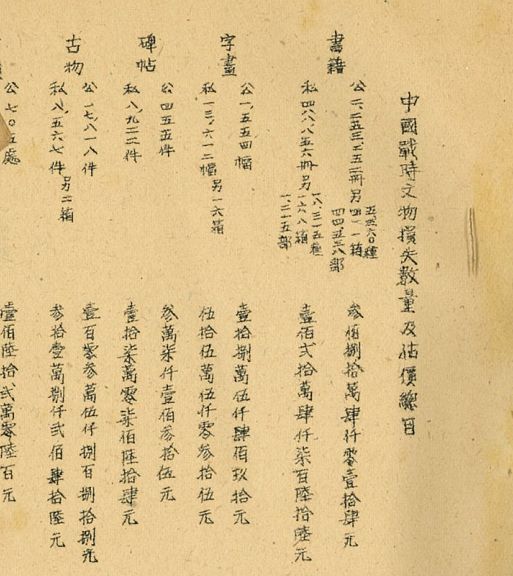 中國戰時文物損失數量及估價總目
書籍
公 二、二五三、二五二冊 另 五、三六〇種 四一一箱 四四、五三八部
參佰捌拾萬肆仟零壹拾肆元
私 四八八、八五六冊 另 一八、三一五種 一六八箱 一、二一五部
壹佰弍拾萬肆仟柒百陸拾陸元
字畫
公 一、五五四幅
壹拾捌萬伍仟肆佰玖拾元
私 一三、六一二幅 另一六箱
伍拾伍萬伍仟零參拾伍元
碑帖
公 四五五件
參萬柒仟壹佰參拾伍元
私 八、九二二件
壹拾柒萬零柒佰陸拾肆元
古物
公 一七、八一八件
壹百零參萬伍仟捌百捌拾捌元
私 八、五六七件 另二箱
參拾壹萬捌仟弍佰肆拾陸元
公 七〇五處
壹佰陸拾弍萬零陸百元